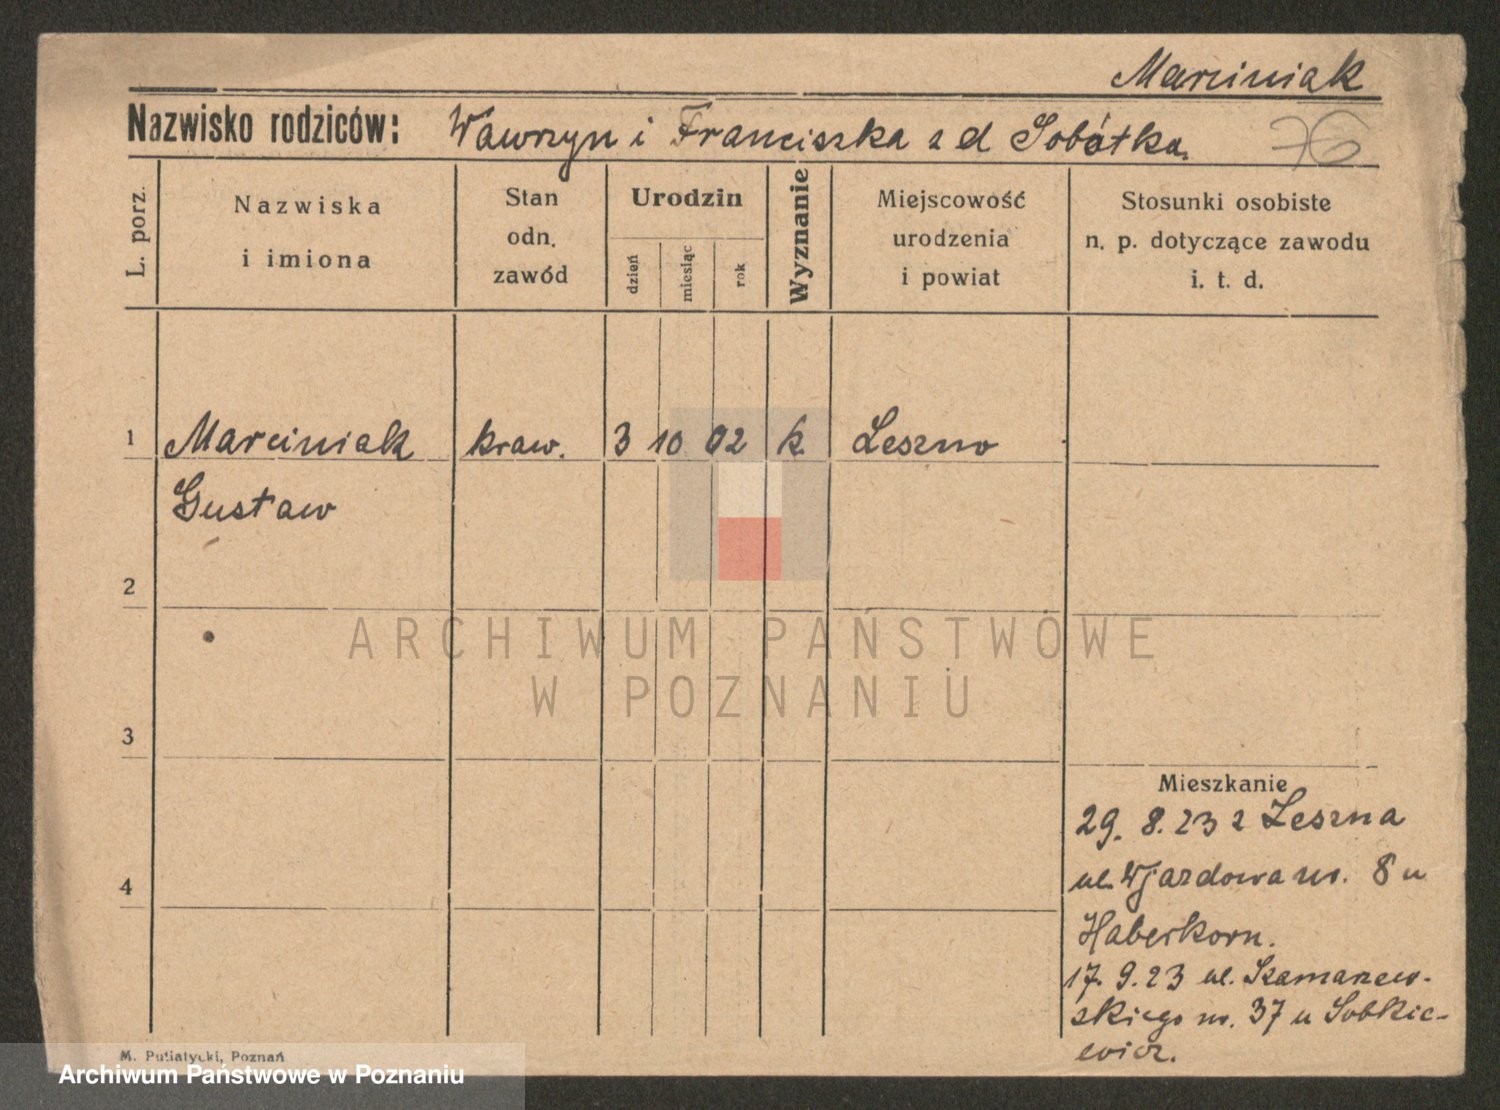 Marciniak
Nazwisko rodziców: Wawrzyn i Franciszka z d Sobótka.
76
L. porz.
Nazwiska
i imiona
Stan
odn.
zawód
Urodzin
dzień
miesiąc
rok
Wyznanie
Miejscowość
urodzenia
i powiat
Stosunki osobiste
n. p. dotyczące zawodu
i. t. d.
1 Marciniak kraw. 3 10 02 k. Leszno
Gustaw
2
3
4
ARCHIWUM PAŃSTWOWE
W POZNANIU
Mieszkanie
29. 8. 23 z Leszna
ul. Wjazdowa nr. 8 u
Haberkorn.
17. 9. 23 ul. Szamarzew-
skiego nr. 37 u Sobkie-
ewicz.
M. Putiatycki, Poznań
Archiwum Państwowe w Poznaniu